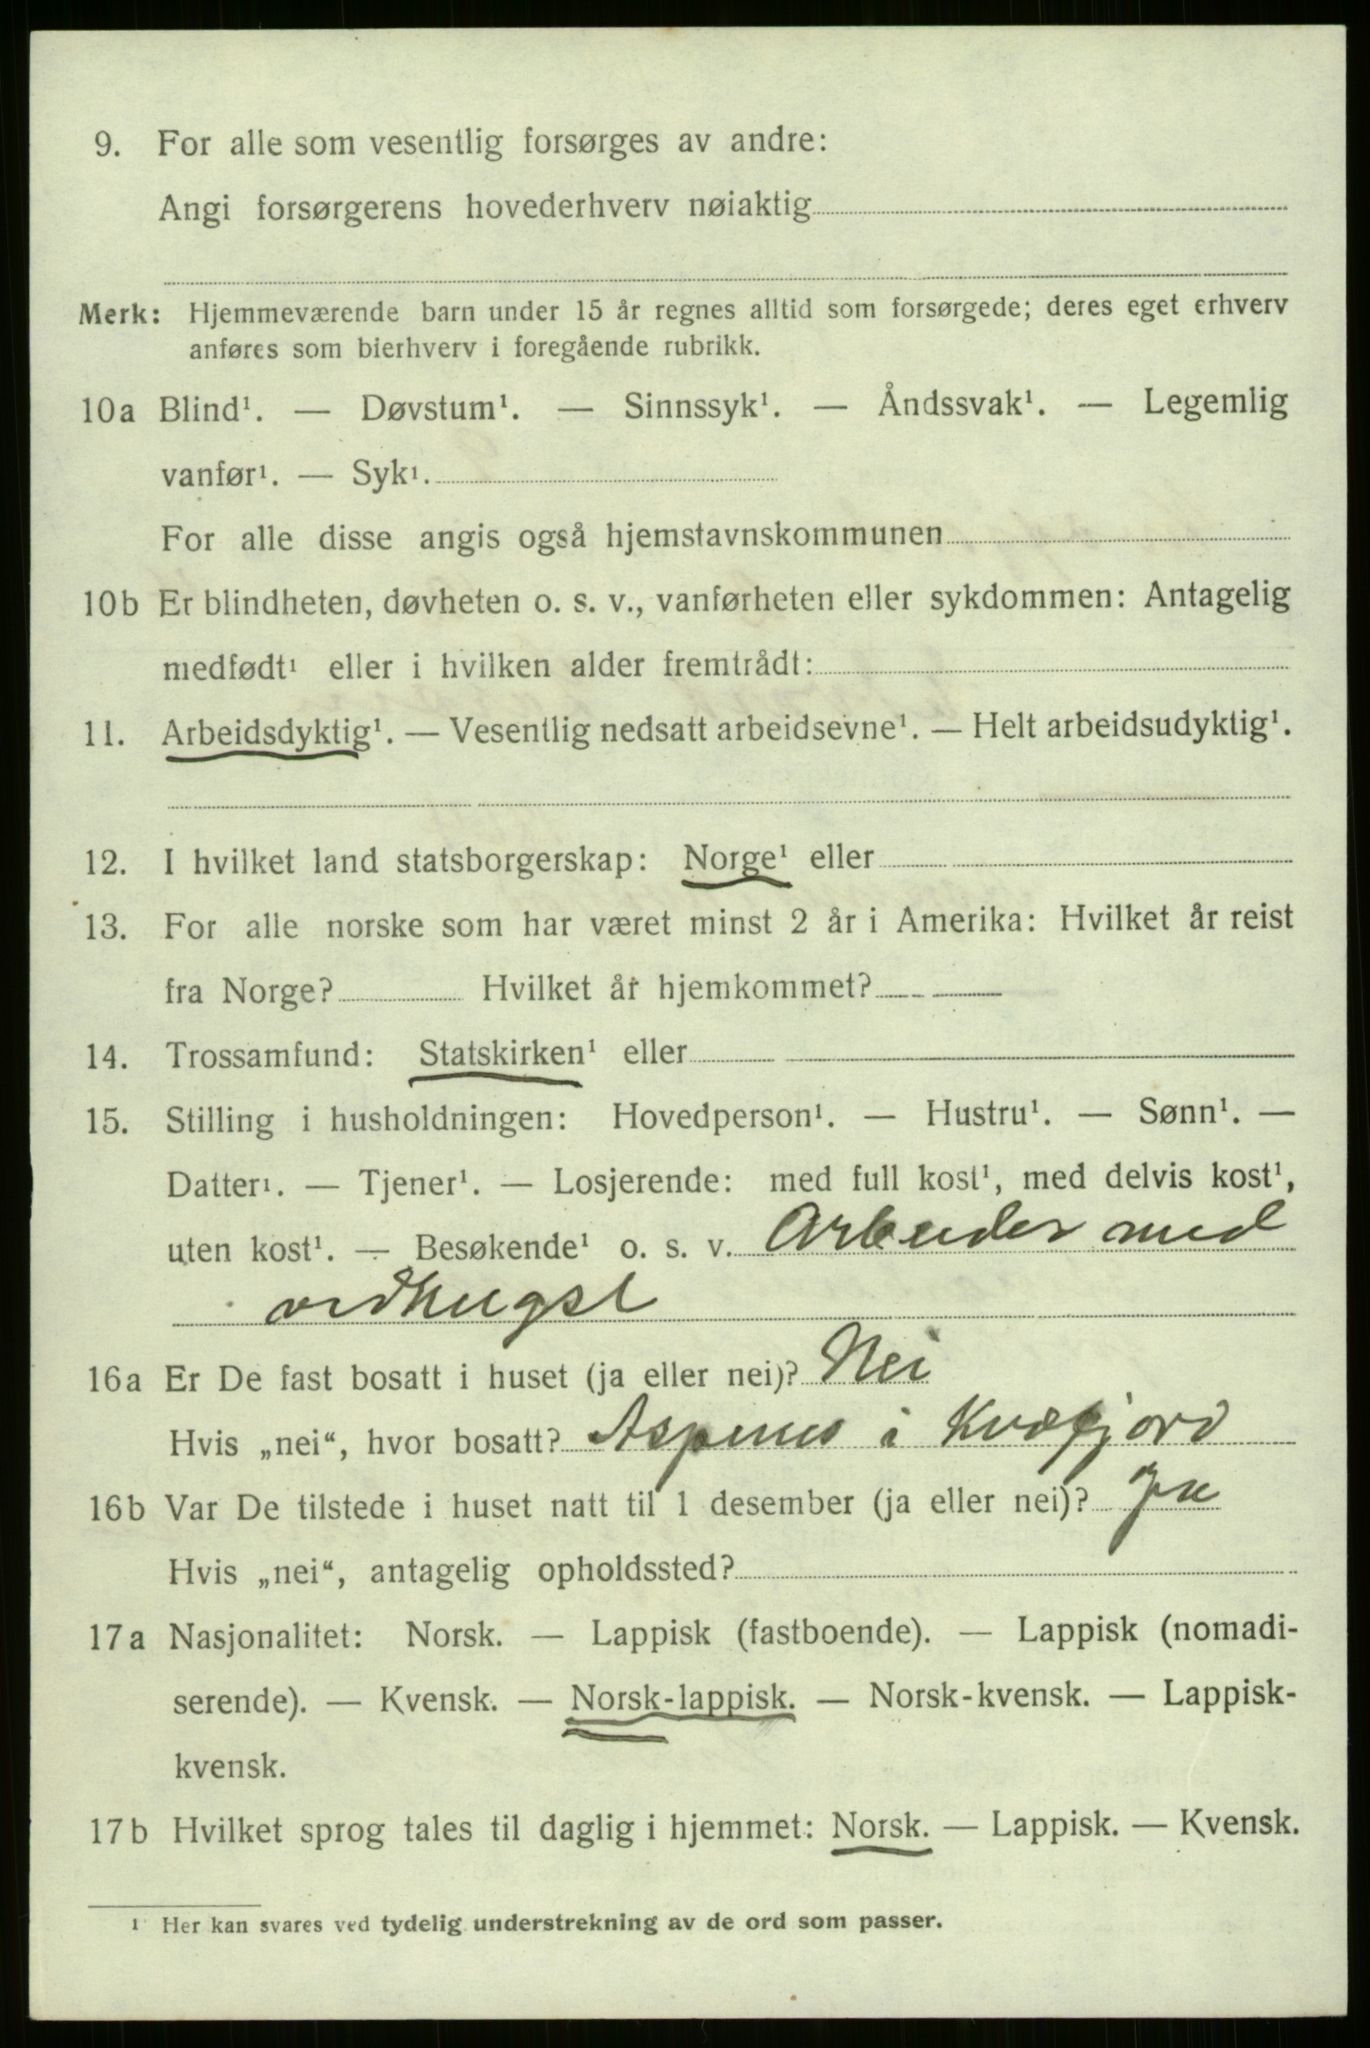 9. For alle som vesentlig forsørges av andre:
Angi forsørgerens hovederhverv nøiaktig
Merk: Hjemmeværende barn under 15 år regnes alltid som forsørgede; deres eget erhverv
anføres som bierhverv i foregående rubrikk.
10a Blind¹. — Døvstum¹. — Sinnssyk¹. — Åndssvak¹. — Legemlig
vanfør¹. — Syk¹.
For alle disse angis også hjemstavnskommunen
10b Er blindheten, døvheten o. s. v., vanførheten eller sykdommen: Antagelig
medfødt¹ eller i hvilken alder fremtrådt:
11. Arbeidsdyktig¹. — Vesentlig nedsatt arbeidsevne¹. — Helt arbeidsudyktig¹.
12. I hvilket land statsborgerskap: Norge¹ eller
13. For alle norske som har været minst 2 år i Amerika: Hvilket år reist
fra Norge? Hvilket år hjemkommet?
14. Trossamfund: Statskirken¹ eller
15. Stilling i husholdningen: Hovedperson¹. — Hustru¹. — Sønn¹. —
Datter¹. — Tjener¹. — Losjerende: med full kost¹, med delvis kost¹,
uten kost¹. — Besøkende¹ o. s. v. Arbeider med
vedhugst
16a Er De fast bosatt i huset (ja eller nei)? Nei
Hvis „nei“, hvor bosatt? Aspenes i Kvæfjord
16b Var De tilstede i huset natt til 1 desember (ja eller nei)? Ja
Hvis „nei“, antagelig opholdssted?
17a Nasjonalitet: Norsk. — Lappisk (fastboende). — Lappisk (nomadi-
serende). — Kvensk. — Norsk-lappisk. — Norsk-kvensk. — Lappisk-
kvensk.
17b Hvilket sprog tales til daglig i hjemmet: Norsk. — Lappisk. — Kvensk.
¹ Her kan svares ved tydelig understrekning av de ord som passer.